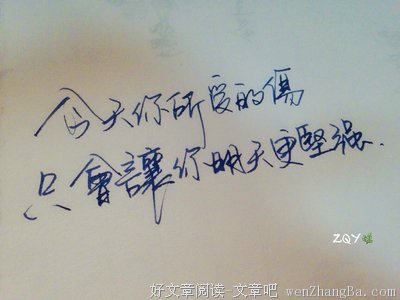 今天你所受的傷
只會讓你明天更堅强.
ZQY
好文章阅读-文章吧
wenZhangBa.com